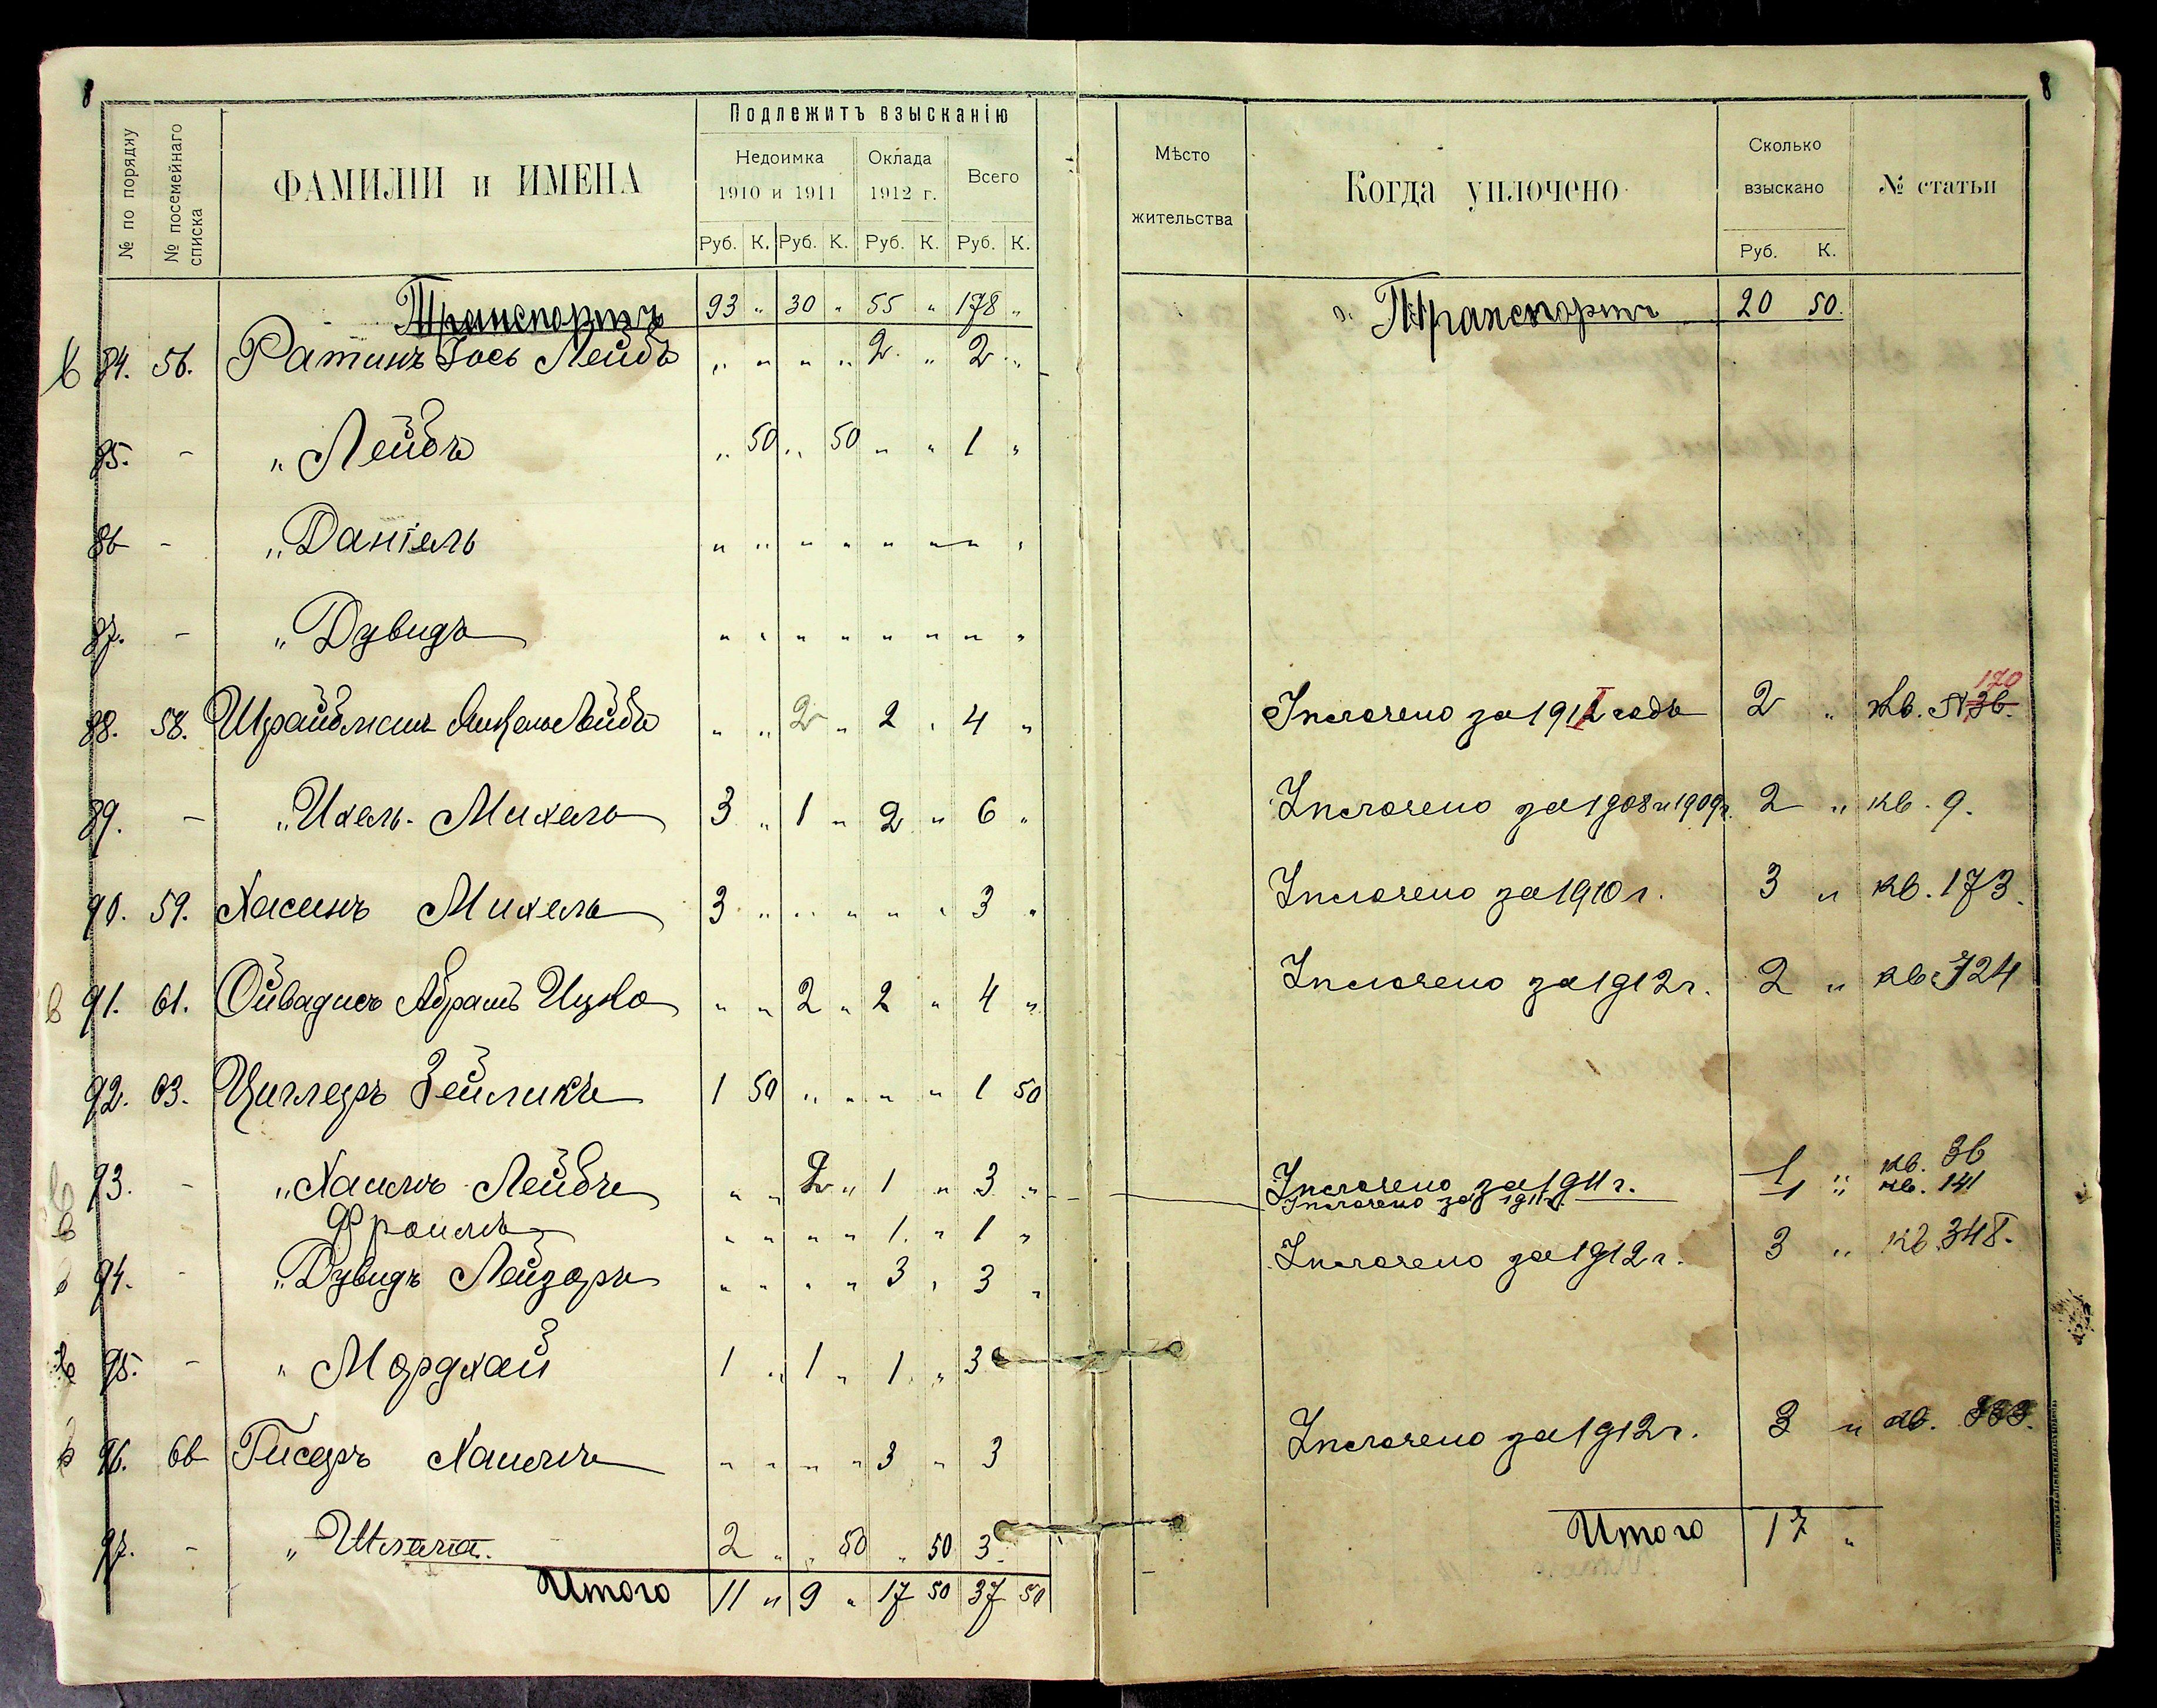 8
№ по порядку
№ посемейнаго списка
ФАМИЛІИ и ИМЕНА
Подлежитъ взысканію
Недоимка
1910 и 1911
Оклада
1912 г.
Всего
Руб. К. Руб. К. Руб. К. Руб. К.
Транспортъ 93 " 30 " 55 " 178 "
84. 56. Ратинъ Іось Лейбъ " " " " 2 " 2 "
85. - " Лейбъ " 50 " 50 " " 1 "
86 - " Даніель " " " " " " " "
87. - " Дувидъ " " " " " " " "
88. 58. Шрайбманъ Лейбъ " " 2 " 2 " 4 "
89. - " Ихель-Михель 3 " 1 " 2 " 6 "
90. 59. Хасинъ Михель 3 " " " " " 3 "
91. 61. Ойвадисъ Абрамъ Ицко " " 2 " 2 " 4 "
92. 63. Циглеръ Зейликъ 1 50 " " " " 1 50
93. - " Хаимъ Лейбъ " " 2 " 1 " 3 "
Фроимъ " " " " 1 " 1 "
94. - " Дувидъ Лейзеръ " " " " 3 " 3 "
95. - " Мордхай 1 " 1 " 1 " 3
96. 66 Гисеръ Хаимъ " " " " 3 " 3
97. - " Шлема. 2 " " 50 " 50 3
Итого 11 " 9 " 17 50 37 50
8
Мѣсто
жительства
Когда уплочено
Сколько
взыскано
Руб. К.
№ статьи
Транспортъ 20 50
Уплочено за 1911 годъ 2 " кв. № 36. 170
Уплочено за 1908 и 1909г. 2 " кв. 9.
Уплочено за 1910 г. 3 " кв. 173.
Уплочено за 1912 г. 2 " кв. 724
Уплочено за 1911 г. 1 " кв. 36
Уплочено за 1911 г. 1 " кв. 141
Уплочено за 1912 г. 3 " кв. 348.
Уплочено за 1912 г. 3 " кв.
Итого 17 "